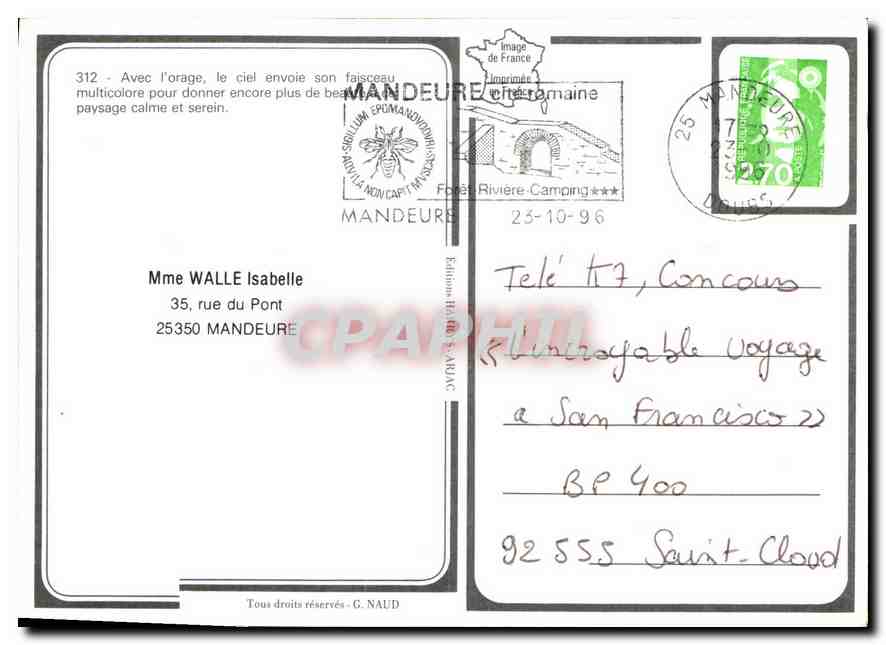 312 - Avec l'orage, le ciel envoie son faisceau
multicolore pour donner encore plus de beauté à
paysage calme et serein.
Image
de France
Imprimée
en France
MANDEURE cité romaine
SIGILLUM EPOMANDVODVRI
AQVILA NON CAPIT MVSCAS
Forêt-Rivière-Camping ***
MANDEURE 23-10-96
25 MANDEURE
DOUBS
2,70
Mme WALLE Isabelle
35, rue du Pont
25350 MANDEURE
CPAPHIL
Telé K7, Concours
«L'incroyable voyage
a San Francisco»
BP 400
92 555 Saint-Cloud
Tous droits réservés - G. NAUD